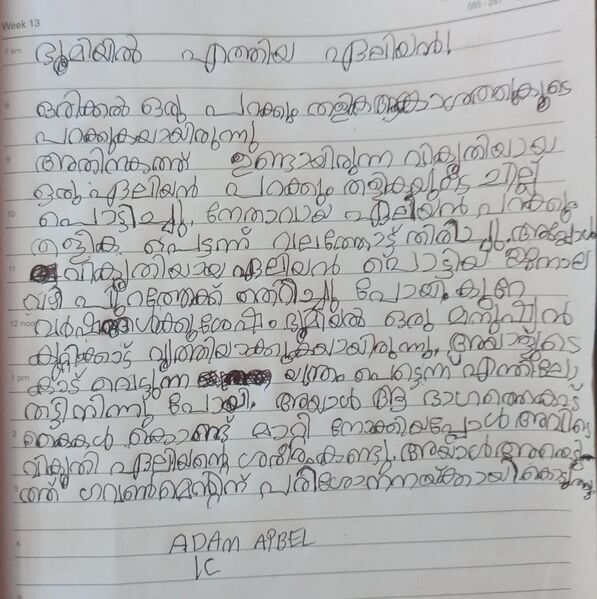 Week 13
7 am
ഭൂമിയിൽ എത്തിയ ഏലിയൻ!
8
ഒരിക്കൽ ഒരു പറക്കും തളിക ആകാശത്തുകൂടെ
പറക്കുകയായിരുന്നു
9
അതിനകത്ത് ഉണ്ടായിരുന്ന വികൃതിയായ
ഒരു ഏലിയൻ പറക്കും തളികയുടെ ചില്ല്
10
പൊട്ടിച്ചു. നേതാവായ ഏലിയൻ പറക്കും
തളിക പെട്ടന്ന് വലത്തോട്ട് തിരിച്ചു. അപ്പോൾ
11
വികൃതിയായ ഏലിയൻ പൊട്ടിയ ജനാല
വഴി പുറത്തേക്ക് തെറിച്ചു പോയി. കുറേ
12 noon
വർഷങ്ങൾക്കുശേഷം ഭൂമിയിൽ ഒരു മനുഷ്യൻ
കുറ്റിക്കാട് വൃത്തിയാക്കുകയായിരുന്നു. അയാളുടെ
1 pm
കാട് വെട്ടുന്ന യന്ത്രം പെട്ടെന്ന് എന്തിലോ
തട്ടിനിന്നു പോയി. അയാൾ ആ ഭാഗത്തെകാട്
2
കൈകൾ കൊണ്ട് മാറ്റി നോക്കിയപ്പോൾ അവിടെ
വികൃതി ഏലിയന്റെ ശരീരം കണ്ടു. അയാൾ
3
ഗവൺമെന്റിന് പരിശോധനയ്ക്കായി കൊടുത്തു
4
ADAM ABEL
1C